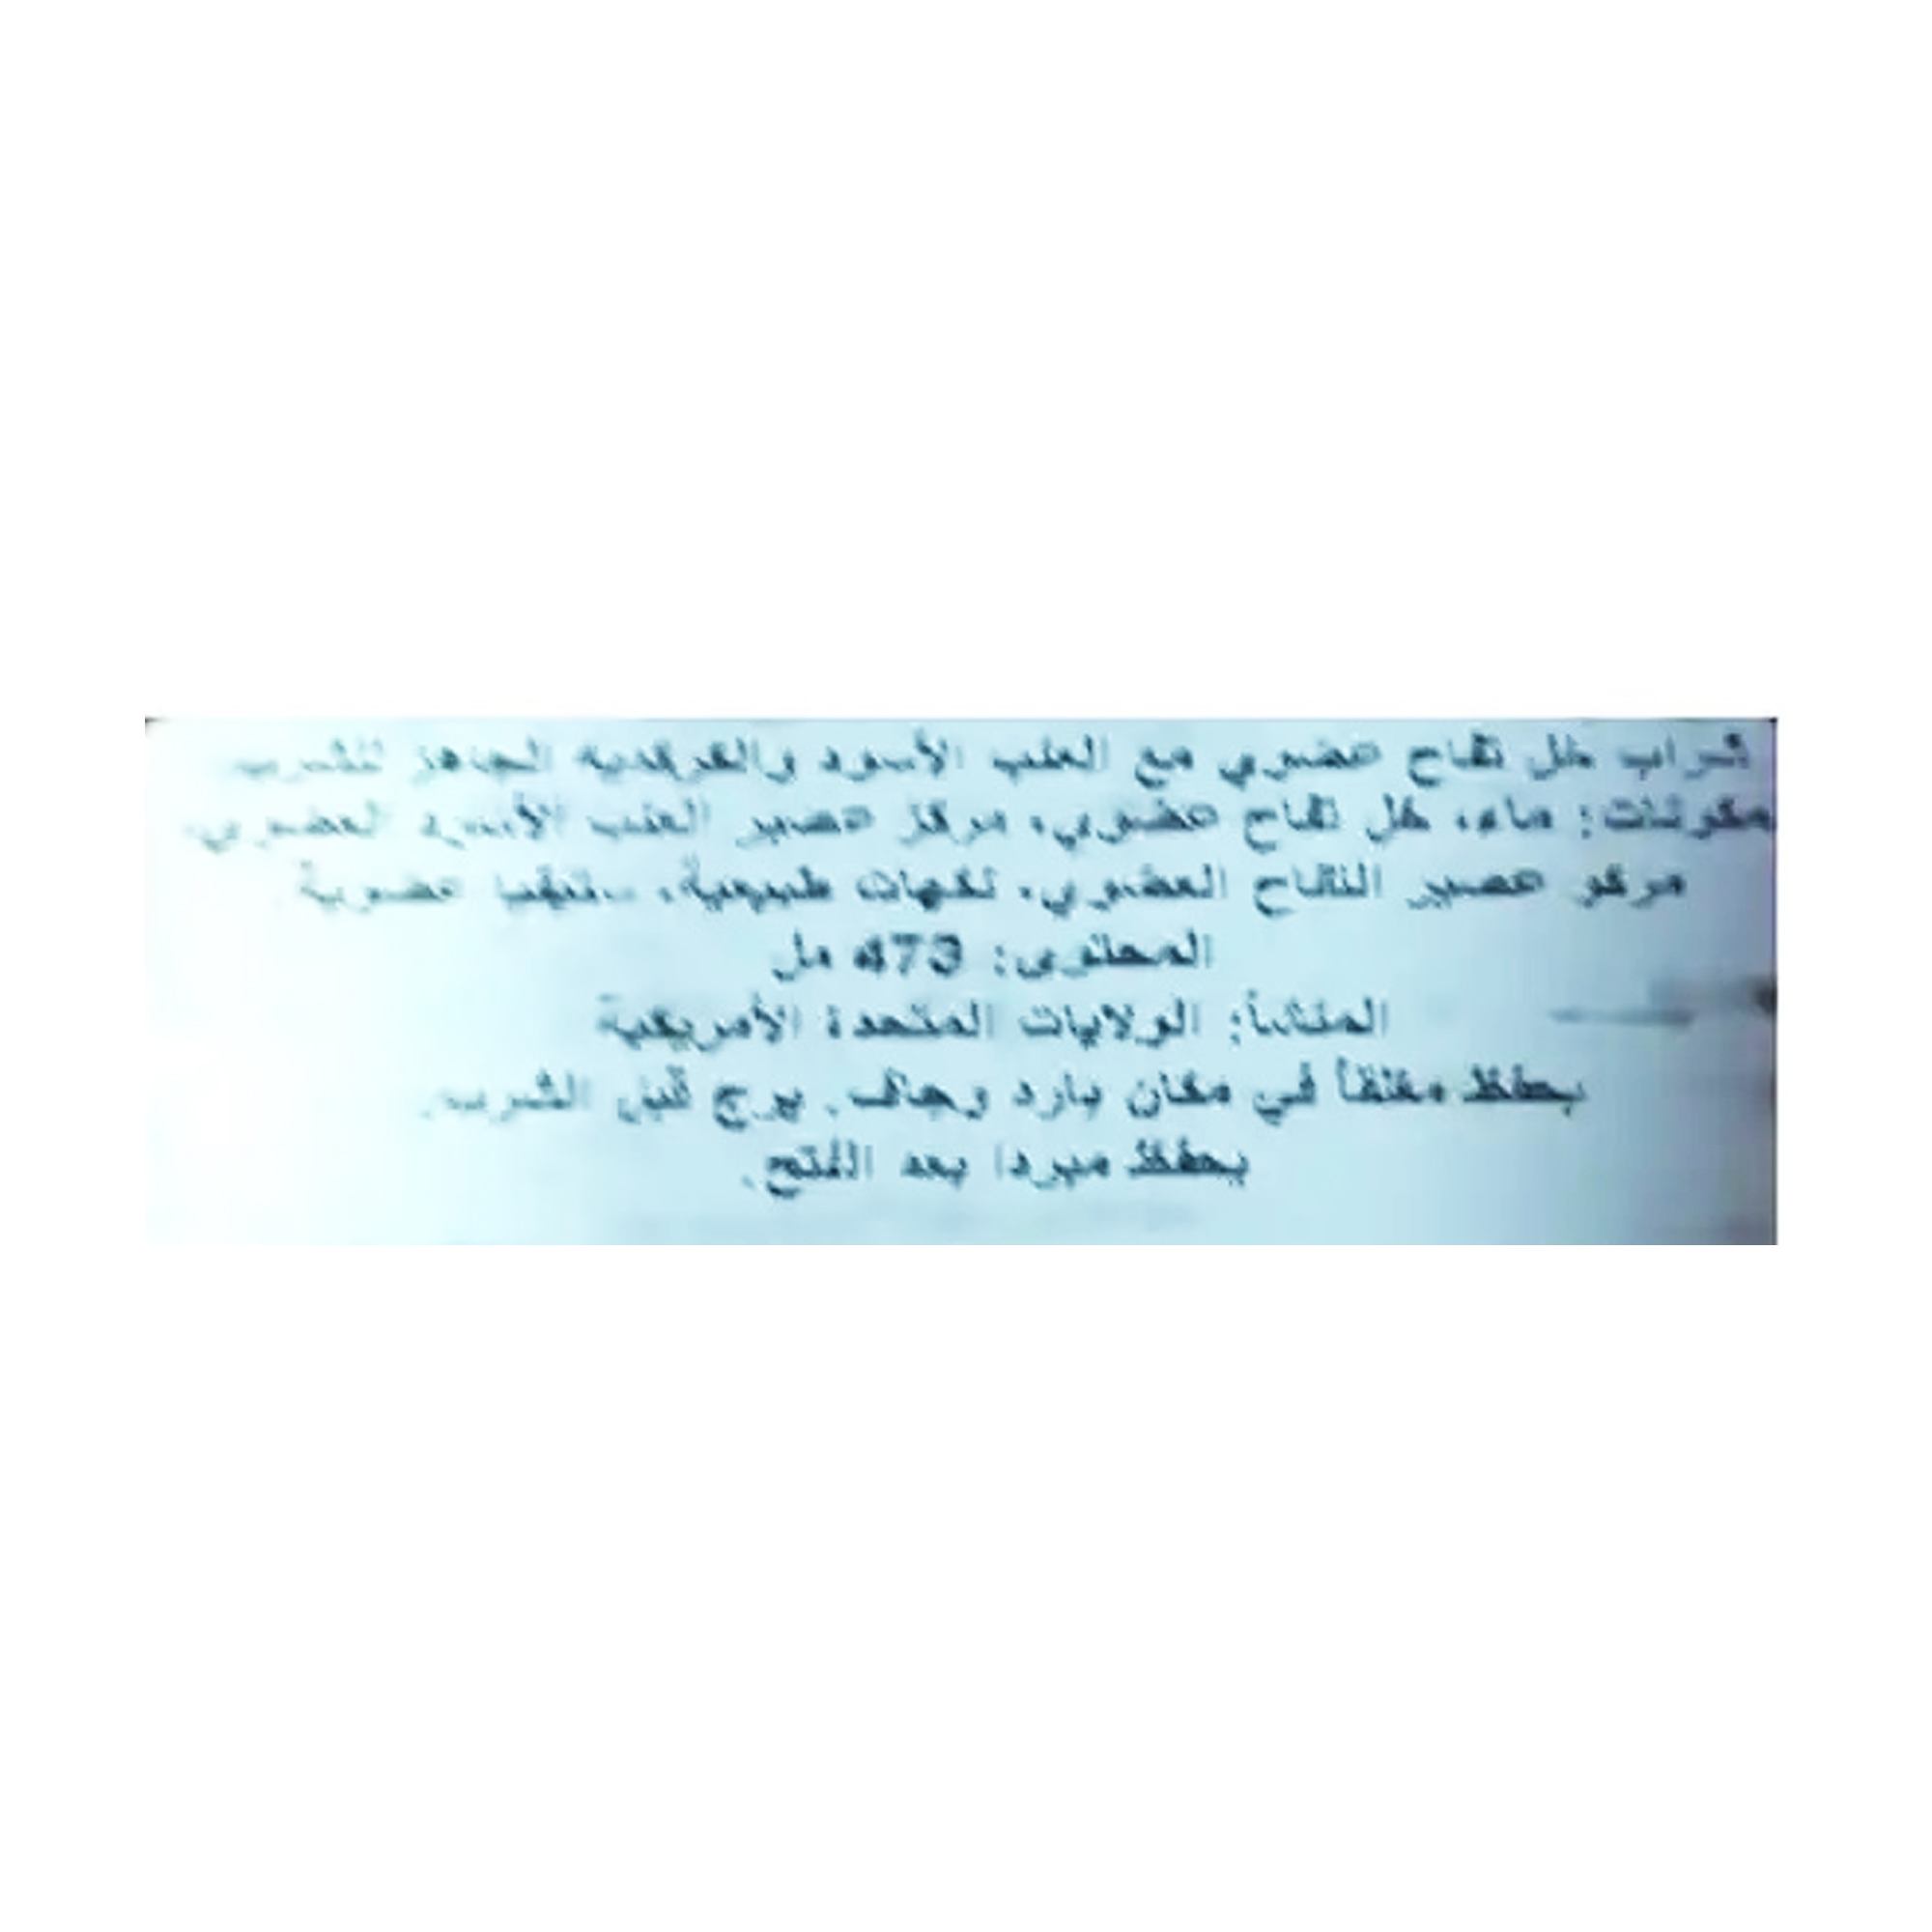 شراب خل تفاح عضوي مع العنب الأسود والكركديه الجاهز للشرب
مكونات: ماء، خل تفاح عضوي، مركز عصير العنب الأسود العضوي،
مركز عصير التفاح العضوي، نكهات طبيعية، ستيفيا عضوية
المحتوى: 473 مل
المنشأ: الولايات المتحدة الأمريكية
يحفظ مغلقاً في مكان بارد وجاف. يرج قبل الشرب.
يحفظ مبردا بعد الفتح.